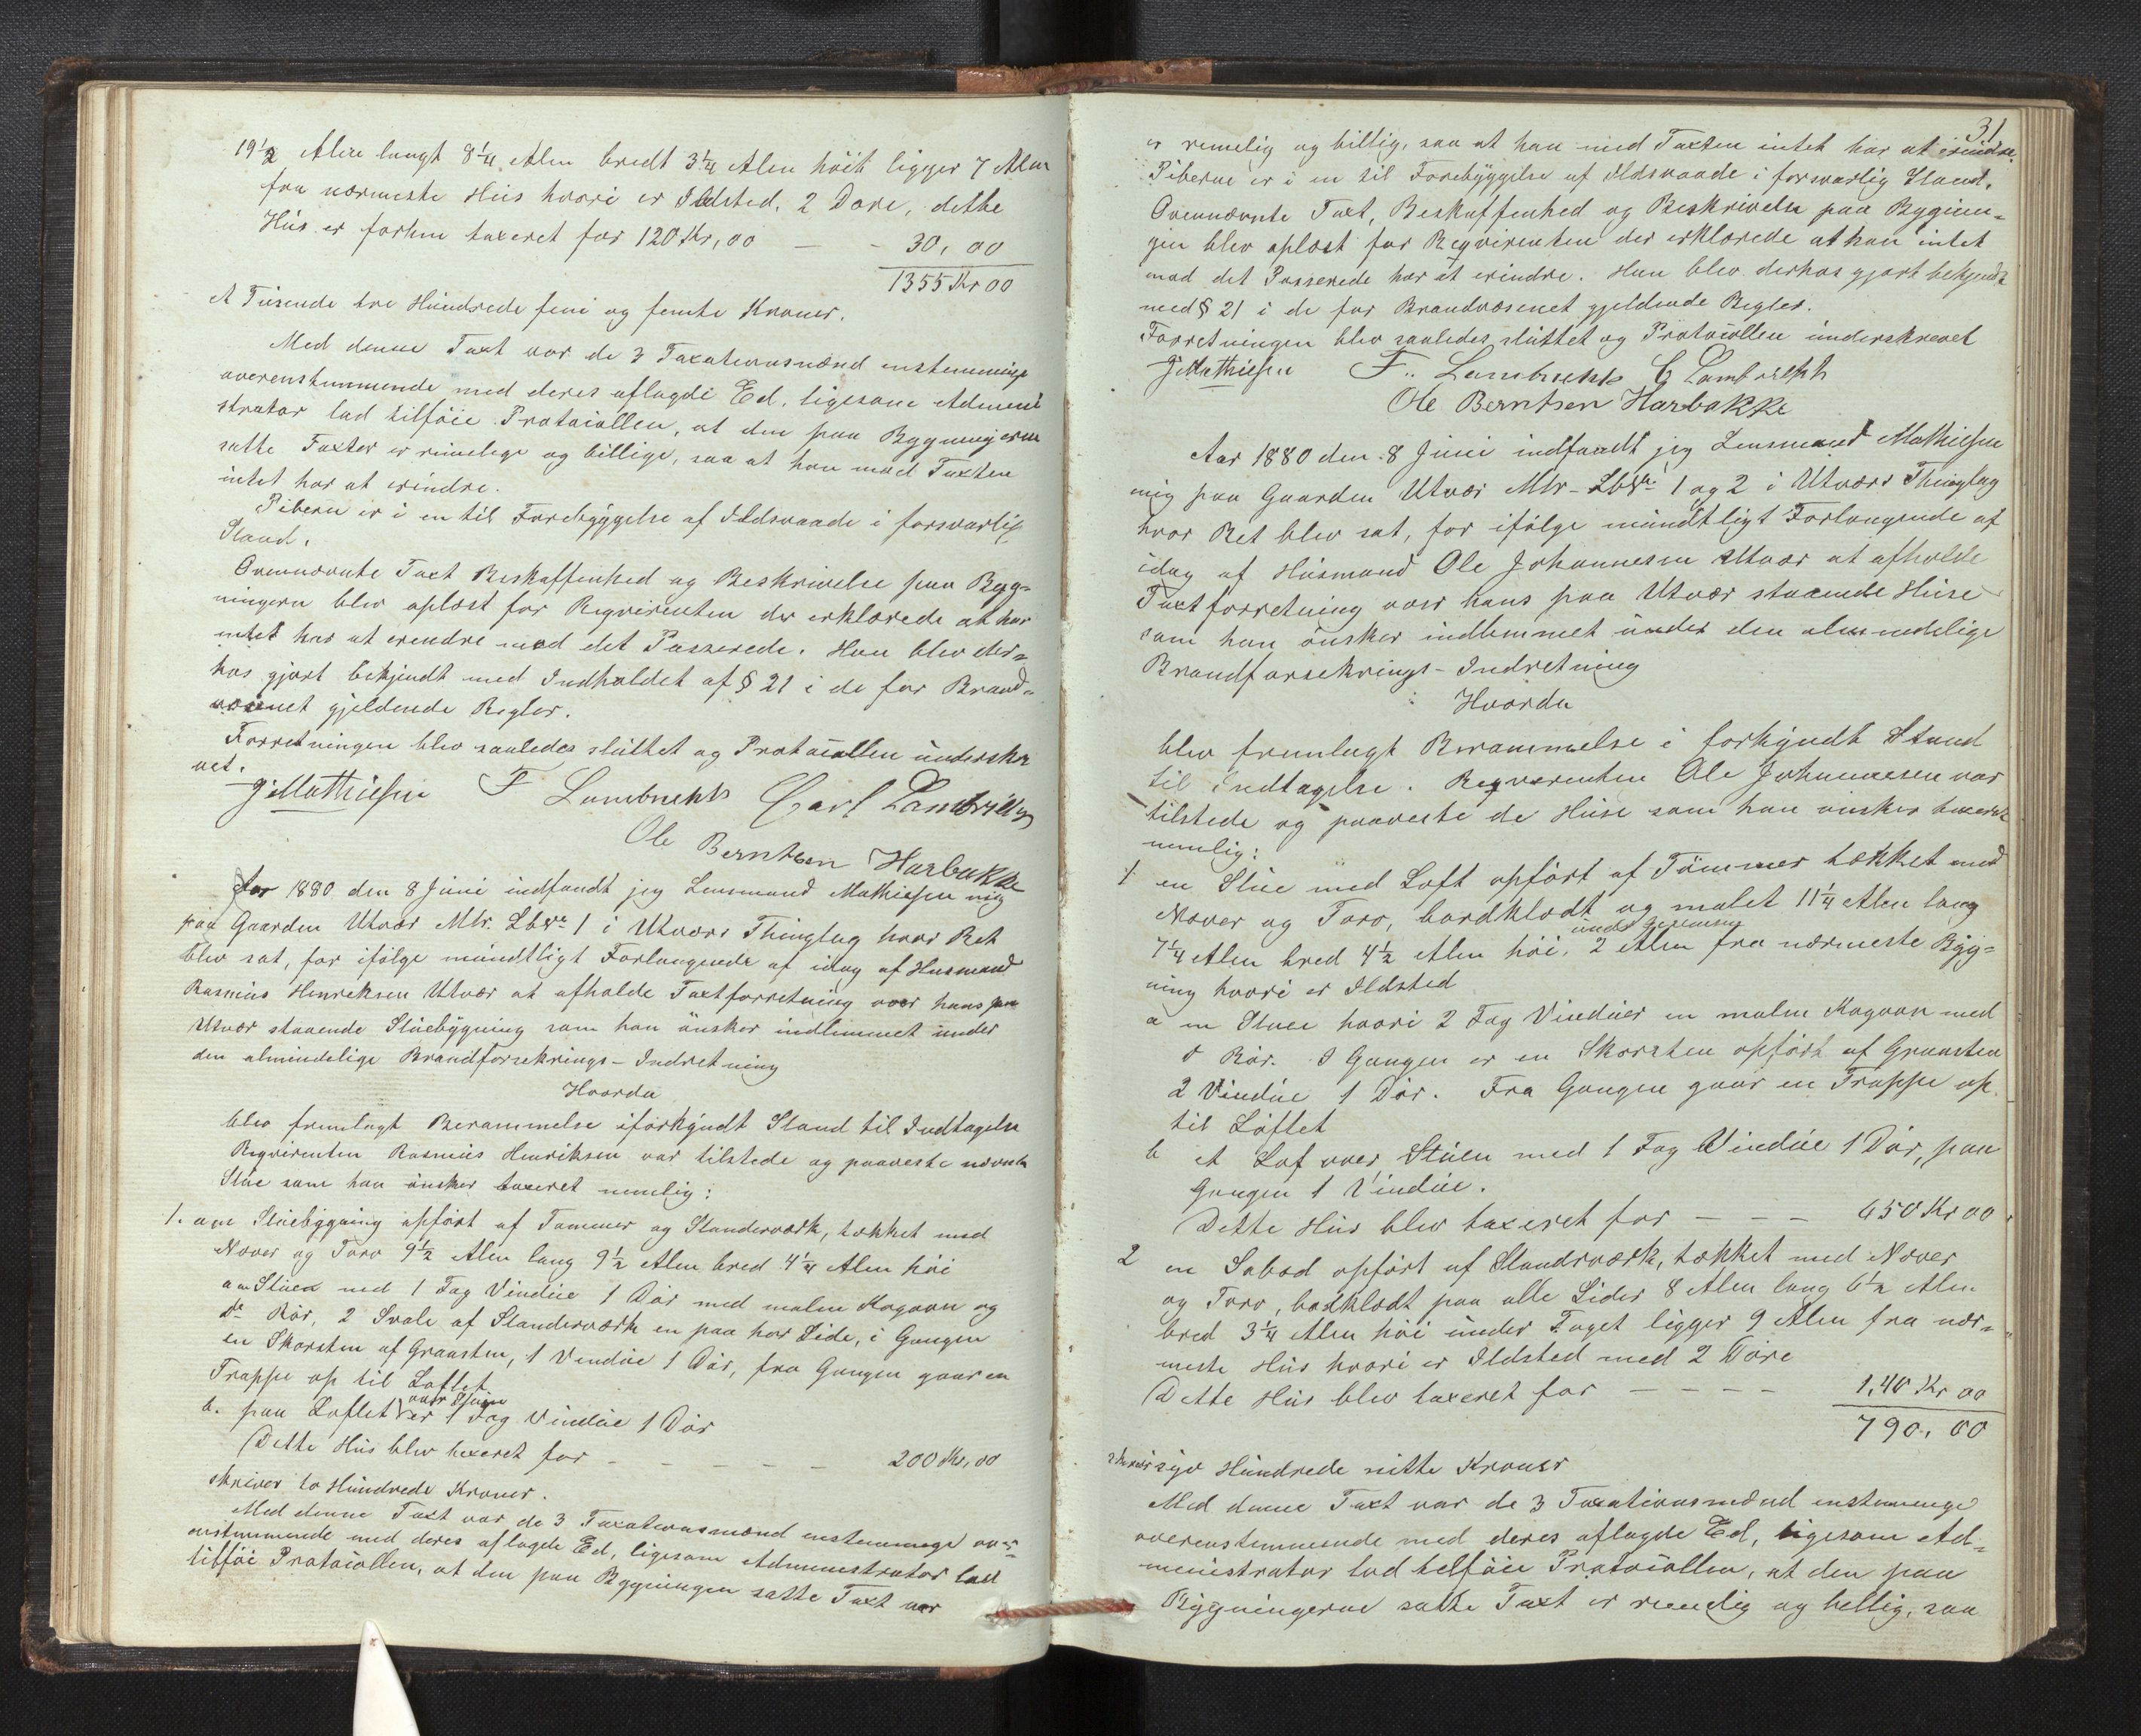 19 1/2 Alen langt 8 1/4 Alen bredt 3 1/4 Alen höit ligger 7 Alen
fra nærmeste Hus hvori er Ildsted, 2 Dore, dette
Hus er forhen taxeret for 120 Kr, 00 — - 30, 00
1355 Kr 00
et Tusende tre Hundrede fem og femti Kroner.
Med denne Taxt var de 3 Taxationsmænd enstemmige
overenstemmende med deres aflagde Ed, ligesom Admini
strator lod tilföie Protocollen, at den paa Bygningerne
satte Taxter er rimelige og billige, saa at han mod Taxten
intet har at erindre.
Piberne er i en til Forebyggelse af Ildsvaade i forsvarlig
Stand.
Ovennævnte Taxt Beskaffenhed og Beskrivelse paa Byg=
ningern blev oplæst for Reqvirenten der erklærede at han
intet har at erendre mod det Passerede. Han blev der=
hos gjort bekjendt med Indholdet af § 21 i de for Brand=
væsenet gjeldende Regler.
Forretningen blev saaledes sluttet og Protocollen underskre
vet.
J Mathiesen F Lambrehts Carl Lambrihts
Ole Berntsen Harbakke
Aar 1880 den 8 Juni indfandt jeg Lensmand Mathiesen mig
paa Gaarden Utvær Mtr. Lbno 1 i Utvær Thinglag hvor Ret
blev sat, for ifölge mundtligt Forlangende af idag af Husmand
Rasmus Henreksen Utvær at afholde Taxtforretning over hans paa
Utvær staaende Stuebygning som han önsker indlemmet under
den almindelige Brandforsekrings-Indretning
Hvorda
blev fremlagt Berammelse iforkyndt Stand til Indtagelse
Reqvirenten Rasmus Henriksen var tilstede og paaveste nævnte
Stue som han önsker taxeret nemlig:
1. em Stuebygning opfört af Tommer og Standerværk, tækket med
Næver og Torv 9 1/2 Alen lang 9 1/2 Alen bred 4 1/4 Alen höi
a en Stuen med 1 Fag Vindue 1 Dör med malm Kogovn og
do Rör, 2 Svale af Standerværk en paa hver Side, i Gangen
en Skorsten af Graasten, 1 Vendue 1 Dör, fra Gangen gaar en
Trappe op til Loftet
b. paa Loftet over Stuen er 1 Fag Vindue 1 Dör
Dette Hus blev taxeret for - - - - - 200 Kr, 00
skriver to Hundrede Kroner.
Med denne Taxt var de 3 Taxationsmænd enstemmege over=
enstemmende med deres aflagde Ed, ligesom Admenestrator lod
tilföie Protocollen, at den paa Bygningen satte Taxt var
31
er remelig og billig, saa at han mod Taxten intet har at erindre.
Piberne er i en til Forebyggelse af Ildsvaade i forsvarlig Stand.
Ovennævnte Taxt, Beskaffenhed og Beskrivelse paa Bygnin=
gen blev oplæst for Reqvirenten der erklærede at han intet
mod det Passerede har at erindre. Han blev derhos gjort bekjendt
med § 21 i de for Brandvæsenet gjeldende Regler.
Forretningen blev saaledes sluttet og Protocollen underskrevet
J Mathiesen F. Lambrehts C Lambrehts
Ole Berntsen Harbakke
Aar 1880 den 8 Juni indfandt jeg Lensmand Mathiesen
mig paa Gaarden Utvær Mtr-Lbno 1 og 2 i Utvær Thinglag
hvor Ret blev sat, for ifölge mundtligt Forlangende af
idag af Husmand Ole Johannesen Utvær at afholde
Taxtforretning over hans paa Utvær staaende Huse
som han önsker indlemmet under den almendelige
Brandforsekrings-Indretning
Hvorda
blev fremlagt Berammelse i forkyndt Stand
til Indtagelse. Reqverenten Ole Johannesen var
tilstede og paaveste de Huse som han önsker taxeret
nemlig:
1 en Stue med Loft opfört af Tömmer tækket med
Næver og Torv, bordklædt og malet 11 1/4 Alen lang
7 1/4 Alen bred 4 1/2 Alen höi, 2 Alen fra nærmeste Byg=
ning hvori er Ildsted
a en Stuee hvori 2 Fag Vinduer en malm Kogovn med
d Rör. I Gangen er en Skorsten opfört af Graasten
2 Vindue 1 Dör. Fra Gangen gaar en Trappe op
til Loftet
b et Lof over Stuen med 1 Fag Vindue 1 Dör, paa
Gangen 1 Vindue.
Dette Hus blev taxeret for - - - 650 Kr 00
2 en Søbod opfört af Standrværk, tækket med Næver
og Torv, bodklædt paa alle Sider 8 Alen lang 6 1/2 Alen
bred 3 1/4 Alen höi under Taget ligger 9 Alen fra nær=
meste Hus hvori er Ildsted med 2 Döre
Dette Hus blev taxeret for - - - - 1,40 Kr 00
790, 00
skriver syv Hundrede nitte Kroner
Med denne Taxt var de 3 Taxationsmænd enstemmige
overenstemmende med deres aflagde Ed, ligesom Ad=
menistrator lod telföie Protocollen, at den paa
Bygningerne satte Taxt er remelig og bellig, saa